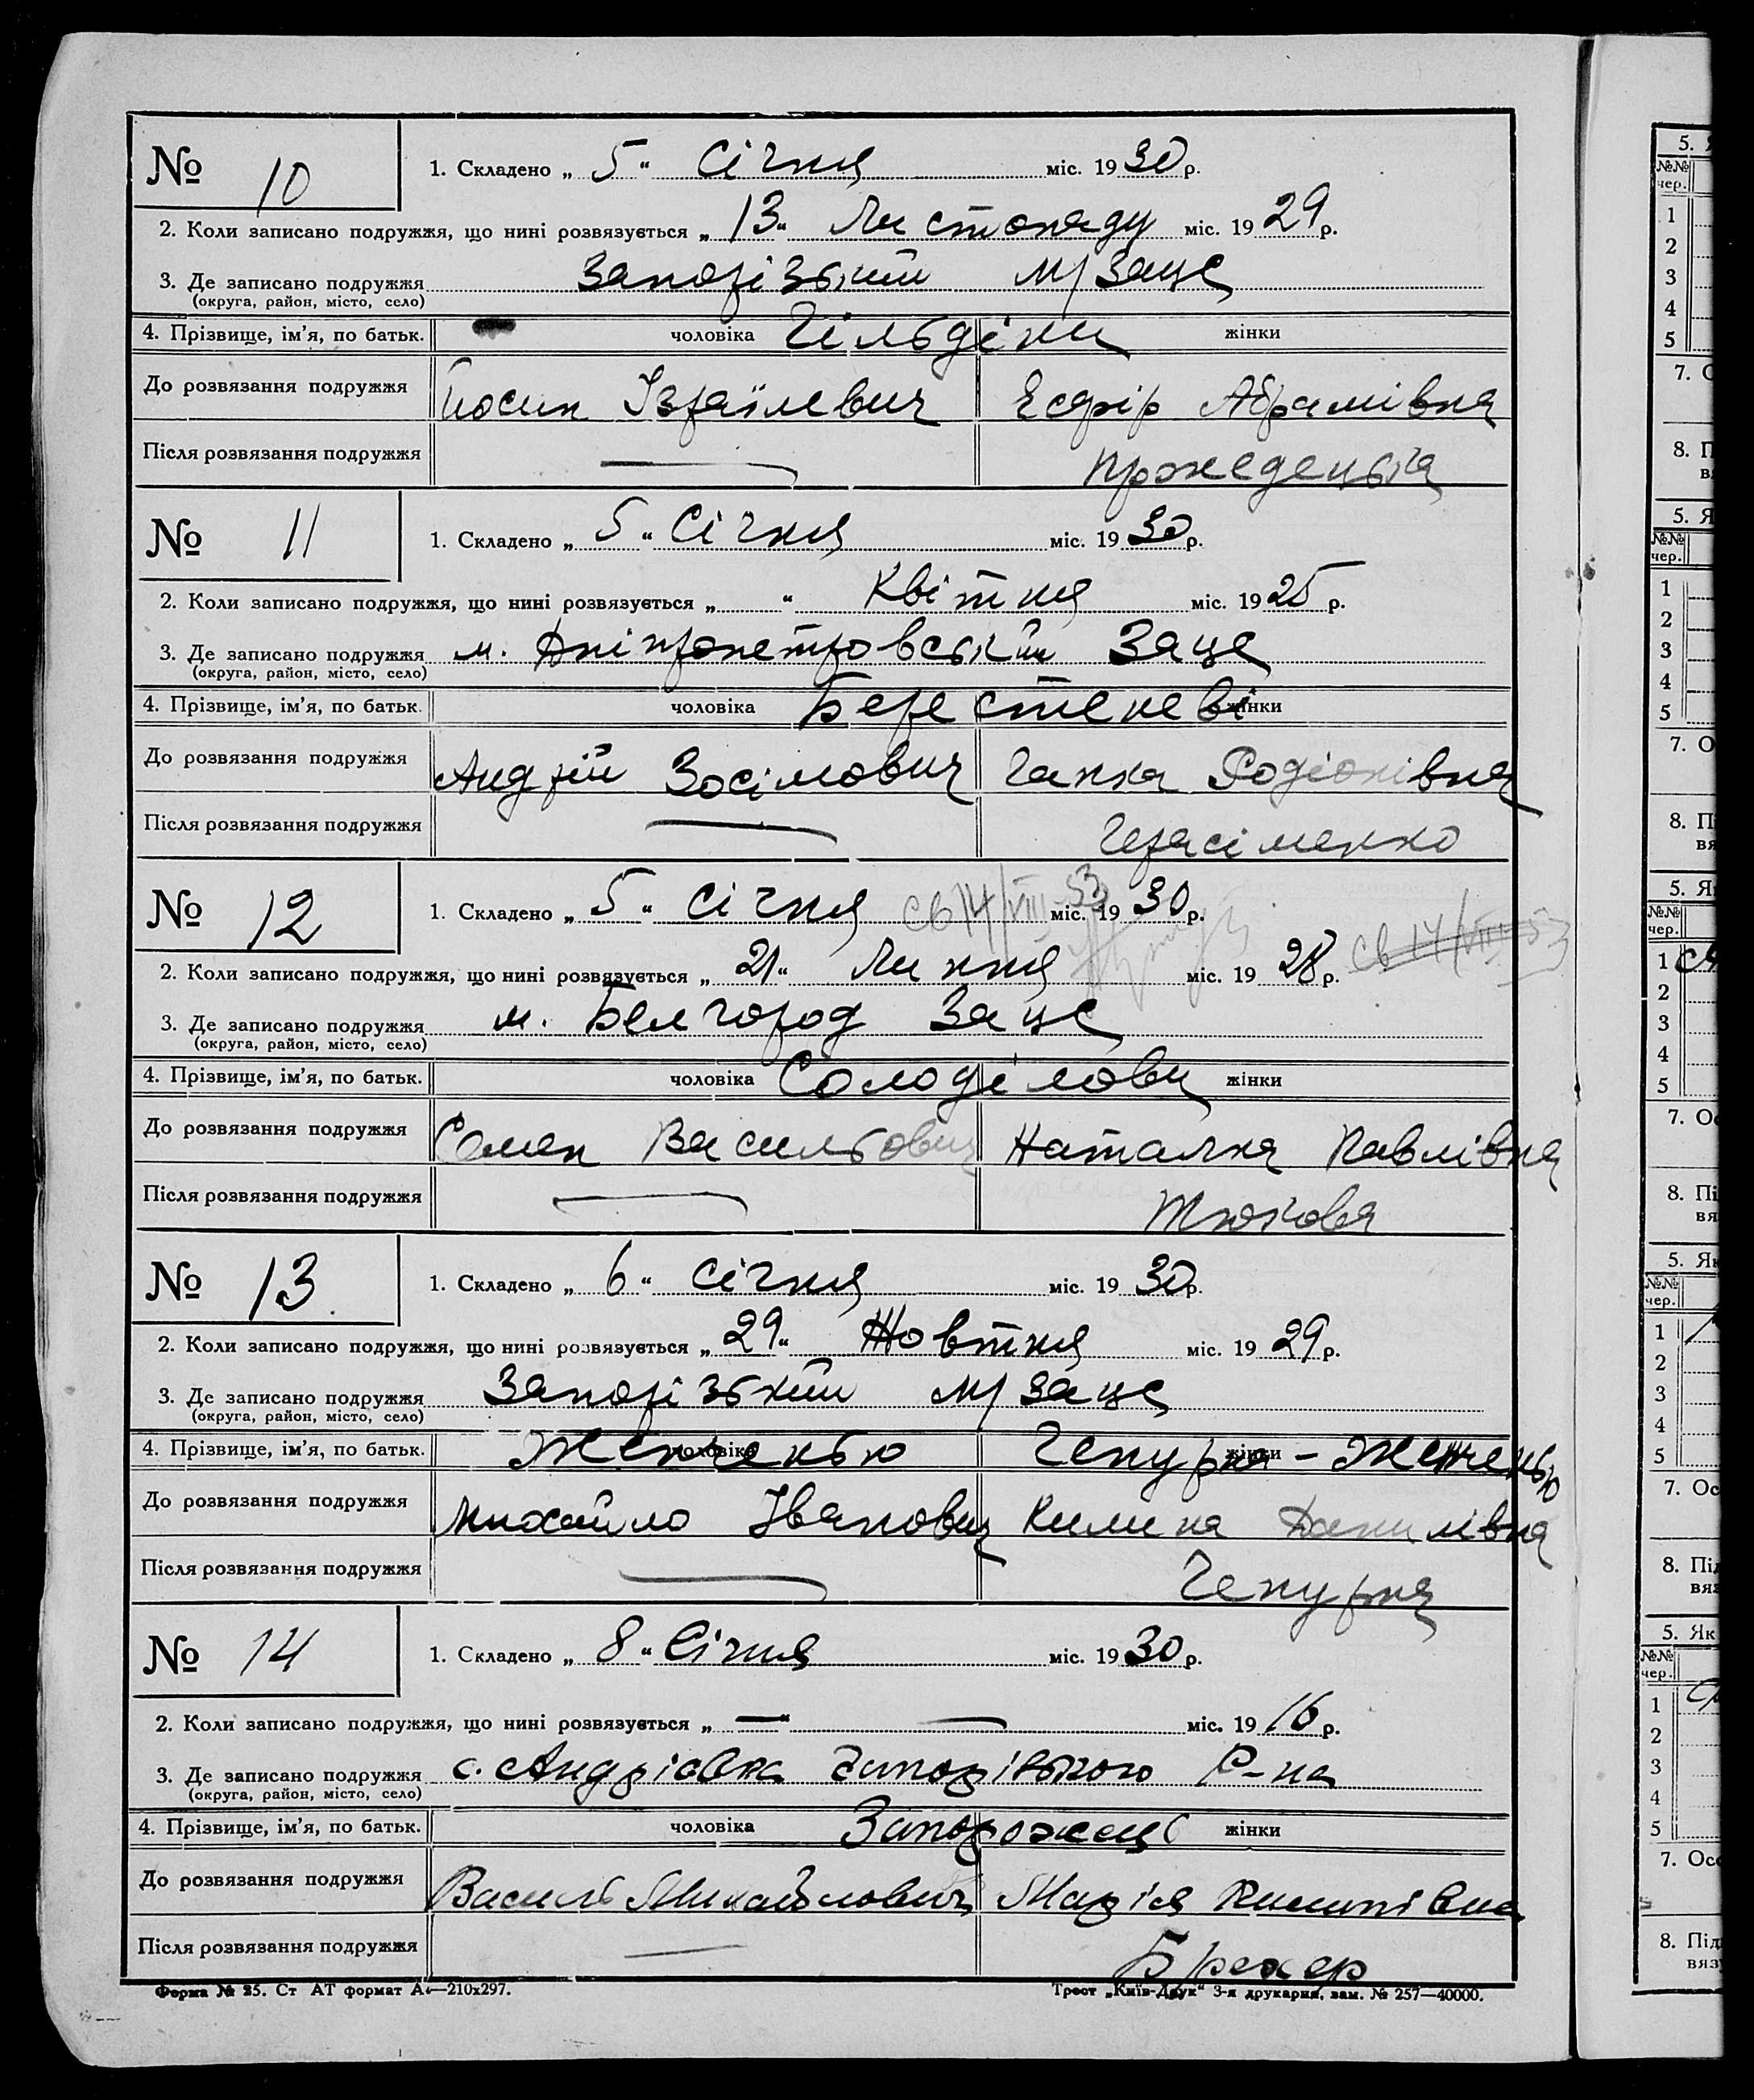 № 10
1. Складено „ 5 “ Січня міс. 19 30 р.
2. Коли записано подружжя, що нині розвязується „ 13 “ Листопаду міс. 19 29 р.
3. Де записано подружжя Запорізький м/Загс
(округа, район, місто, село)
4. Прізвище, ім’я, по батьк. чоловіка Гільдіни жінки
До розвязання подружжя Йосип Ізраїлевич Есфір Абрамівна
Після розвязання подружжя — Пржедецька
№ 11
1. Складено „ 5 “ Січня міс. 19 30 р.
2. Коли записано подружжя, що нині розвязується „ “ Квітня міс. 19 25 р.
3. Де записано подружжя м. Дніпропетровський Загс
(округа, район, місто, село)
4. Прізвище, ім’я, по батьк. чоловіка жінки
До розвязання подружжя Андрій Зосімович Ганна Родіонівна
Після розвязання подружжя — Герасіменко
№ 12
1. Складено „ 5 “ Січня св 14/VIII-53 міс. 19 30 р.
2. Коли записано подружжя, що нині розвязується „ 21 “ Липня міс. 19 28 р. св 14/VIII 53
3. Де записано подружжя м. Белгород Загс
(округа, район, місто, село)
4. Прізвище, ім’я, по батьк. чоловіка Солоділови жінки
До розвязання подружжя Семен Васильович Наталка Павлівна
Після розвязання подружжя —
№ 13
1. Складено „ 6 “ Січня міс. 19 30 р.
2. Коли записано подружжя, що нині розвязується „ 29 “ Жовтня міс. 19 29 р.
3. Де записано подружжя Запорізький м/Загс
(округа, район, місто, село)
4. Прізвище, ім’я, по батьк. чоловіка жінки
До розвязання подружжя Михайло Іванович Килина Данилівна
Після розвязання подружжя — Чепурна
№ 14
1. Складено „ 8 “ Січня міс. 19 30 р.
2. Коли записано подружжя, що нині розвязується „ — “ — міс. 19 16 р.
3. Де записано подружжя с. Андріївка Запорізького Р-на
(округа, район, місто, село)
4. Прізвище, ім’я, по батьк. чоловіка Запорожець жінки
До розвязання подружжя Василь Михайлович Марія Пилипівна
Після розвязання подружжя — Брехер
Форма № 25. Ст АТ формат А4—210х297. Трест „Київ-Друк“ 3-я друкарня, зам. № 257—40000.